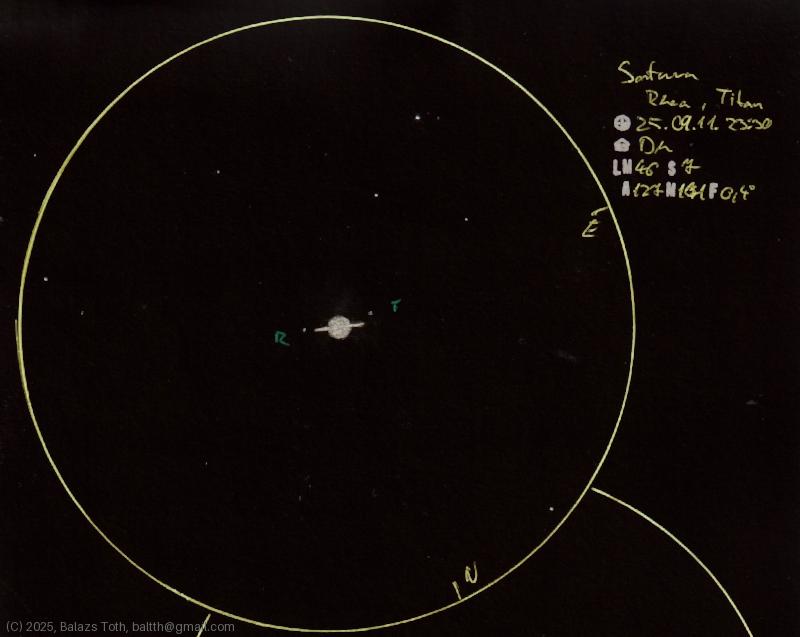 Saturn
Rhea, Titan
25.09.11. 23:30
Dh
LM 46 S 7
A 127 N 191 F 0,4°
E
T
R
N
(C) 2025, Balazs Toth, baltth@gmail.com